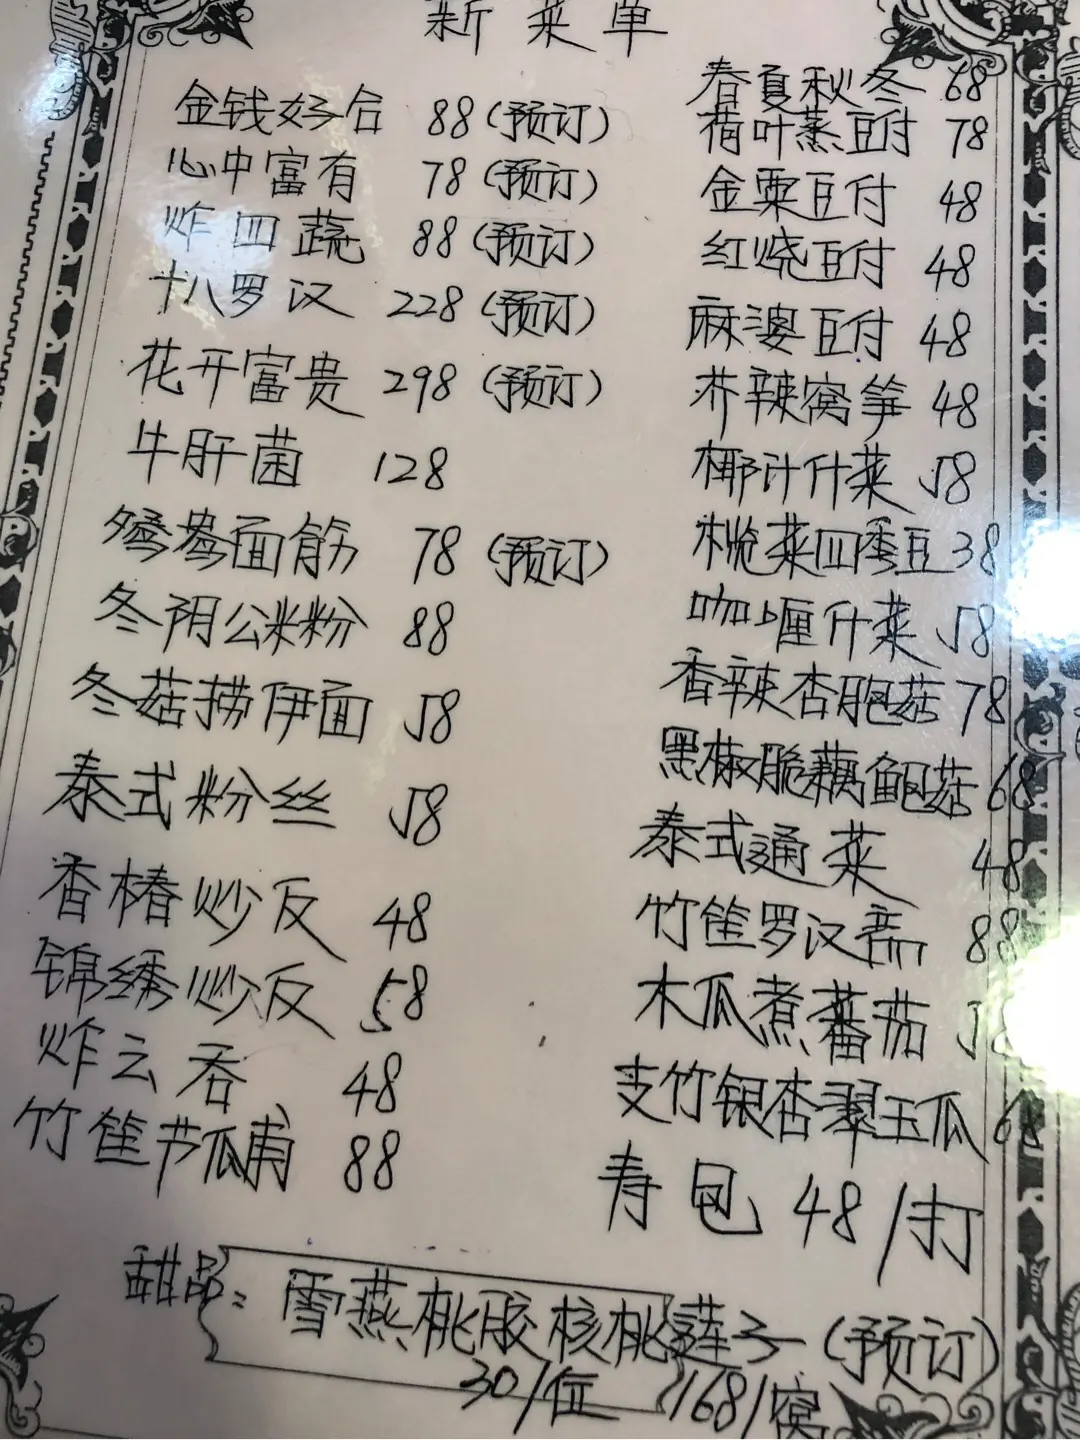 新菜单
金钱好合 88(预订)
心中富有 78(预订)
炸四蔬 88(预订)
十八罗汉 228(预订)
花开富贵 298(预订)
牛肝菌 128
鸳鸯面筋 78(预订)
冬阴公米粉 88
冬菇捞伊面 58
泰式粉丝 58
香椿炒反 48
锦绣炒反 58
炸云吞 48
竹笙节瓜甫 88
春夏秋冬 68
荷叶蒸豆付 78
金粟豆付 48
红烧豆付 48
麻婆豆付 48
芥辣窝笋 48
椰汁什菜 58
榄菜四季豆 38
咖喱什菜 58
香辣杏胞菇 78
黑椒脆藕鲍菇 68
泰式通菜 48
竹笙罗汉斋 88
木瓜煮蕃茄 58
支竹银杏翠玉瓜 68
寿包 48/打
甜品: 雪燕桃胶核桃莲子(预订)
30/位 168/窝